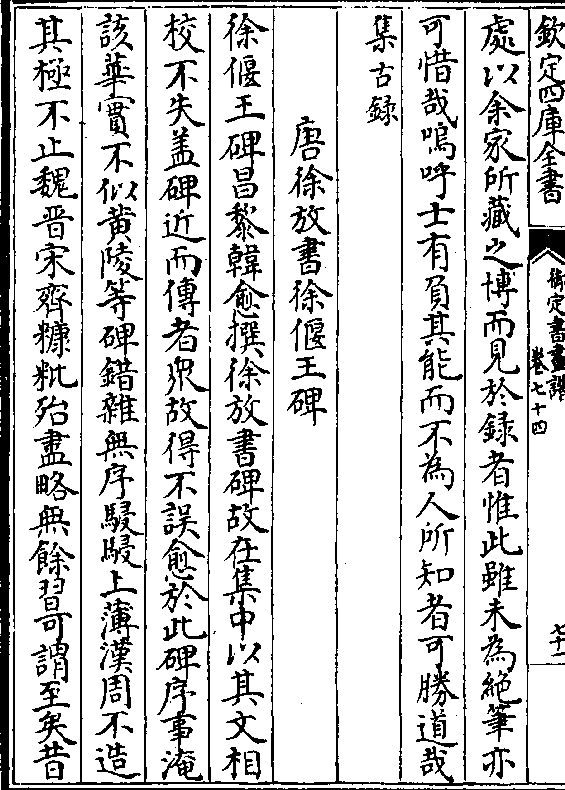 欽定四庫全書
御定書畫譜
卷七十四
七十一
處以余家所藏之博而見於録者惟此雖未為絶筆亦
可惜哉嗚呼士有負其能而不為人所知者可勝道哉
集古録
唐徐放書徐偃王碑
徐偃王碑昌黎韓愈撰徐放書碑故在集中以其文相
校不失盖碑近而傳者衆故得不誤愈於此碑序事淹
該華實不似黄陵等碑錯雜無序駸駸上薄漢周不造
其極不止魏晋宋齊糠粃殆盡略無餘習可謂至矣昔